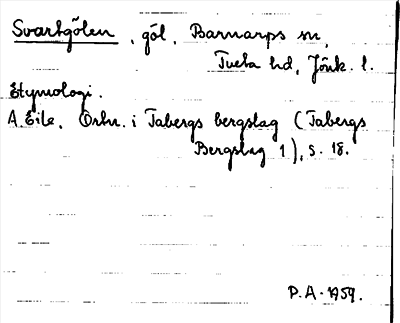 Svartgölen, göl, Barnarps sn,
Tveta hd, Jönk. l.
Etymologi.
A. Eile, Ortn. i Tabergs bergslag (Tabergs
Bergslag 1), s. 18.
P.A. 1959.